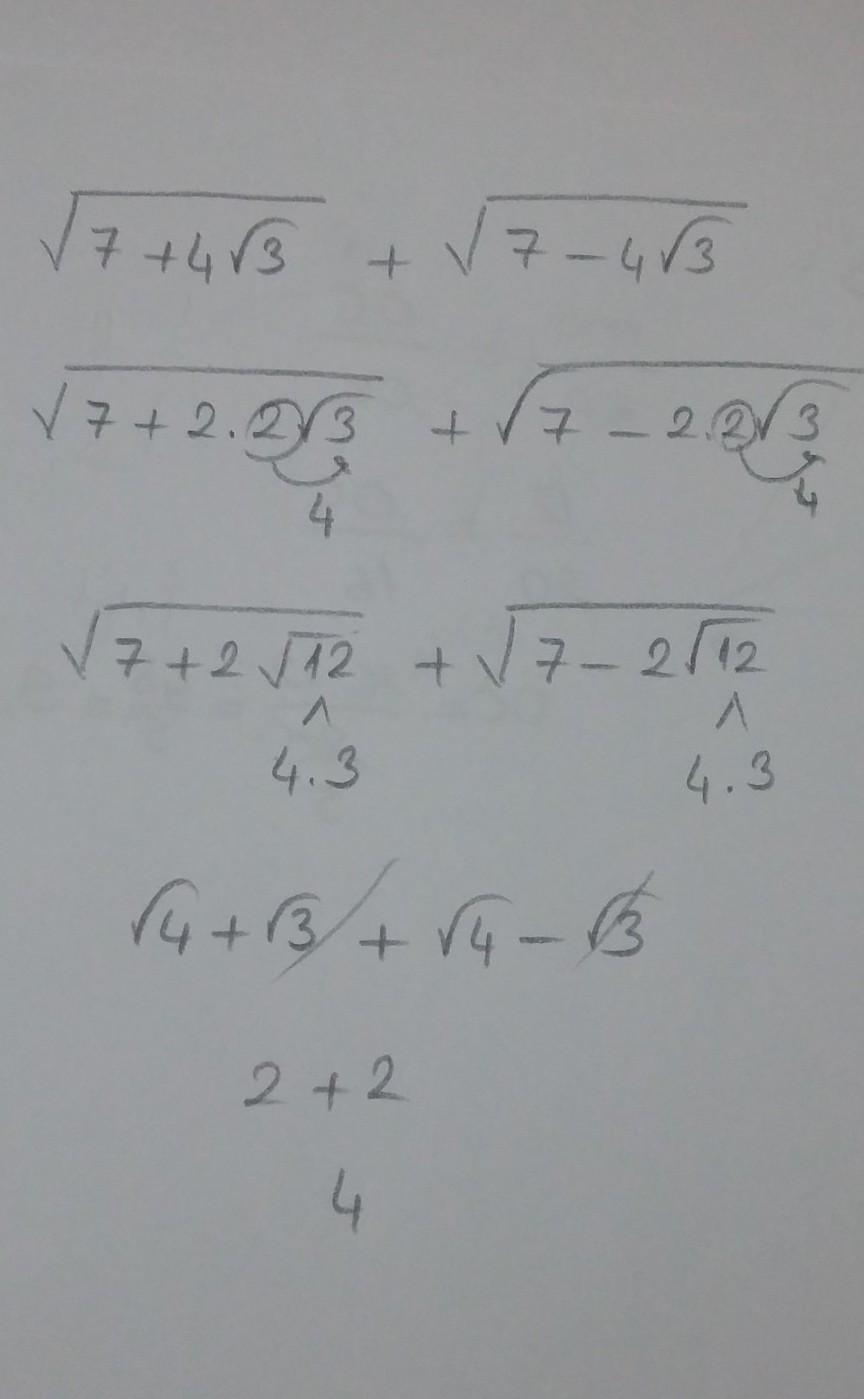 √(7+4√3) + √(7-4√3)
√(7+2.2√3) + √(7-2.2√3)
4 4
√(7+2√12) + √(7-2√12)
^ ^
4.3 4.3
√4+√3 + √4-√3
2+2
4